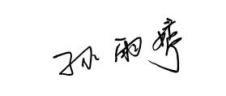 孙雨婷